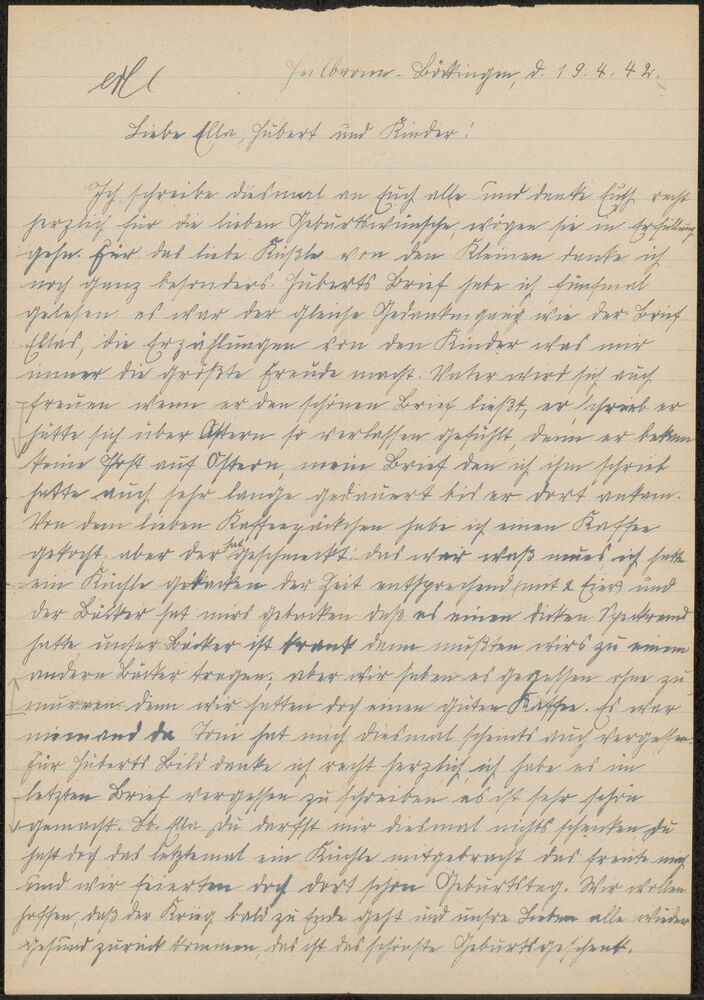 erl
Heilbronn-Böckingen, d. 19.4.42.
Liebe Ella, Hubert und Kinder!
Ich schreibe diesmal an Euch alle und danke Euch recht
herzlich für die lieben Geburtswünsche, mögen sie in Erfüllung
gehn. Für das liebe Küßle von den Kleinen danke ich
noch ganz besonders. Huberts Brief habe ich fünfmal
gelesen es war der gleiche Gedankengang wie der Brief
Ellas, die Erzählungen von den Kinder was mir
immer die größte Freude macht. Vater wird sich auch
freuen wenn er den schönen Brief ließt, er schrieb er
hätte sich über Ostern so verlassen gefühlt, denn er bekam
keine Post auf Ostern, mein Brief den ich ihm schrieb
hatte auch sehr lange gedauert bis er dort ankam.
Von dem lieben Kaffeepäckchen habe ich einen Kaffee
gekocht, aber der hat geschmeckt! das war was neues ich hatte
ein Küchle gebacken der Zeit entsprechend (mit 2 Eier) und
der Bäcker hat mirs gebacken daß es einen dicken Speckrand
hatte, unser Bäcker ist krank dann mußten wirs zu einem
andern Bäcker tragen, aber wir haben es gegessen ohne zu
murren denn wir hatten doch einen guten Kaffee. Es war
niemand da Toni hat mich diesmal scheints auch vergessen.
Für Huberts Bild danke ich recht herzlich ich habe es im
letzten Brief vergessen zu schreiben es ist sehr schön
gemacht. Lb. Ella Du darfst mir diesmal nichts schenken, Du
hast doch das letztemal ein Küchle mitgebracht das freute mich
und wir feierten doch dort schon Geburtstag. Wir wollen
hoffen, daß der Krieg bald zu Ende geht und unsre Lieben alle wieder
gesund zurück kommen, das ist das schönste Geburtsgeschenk.